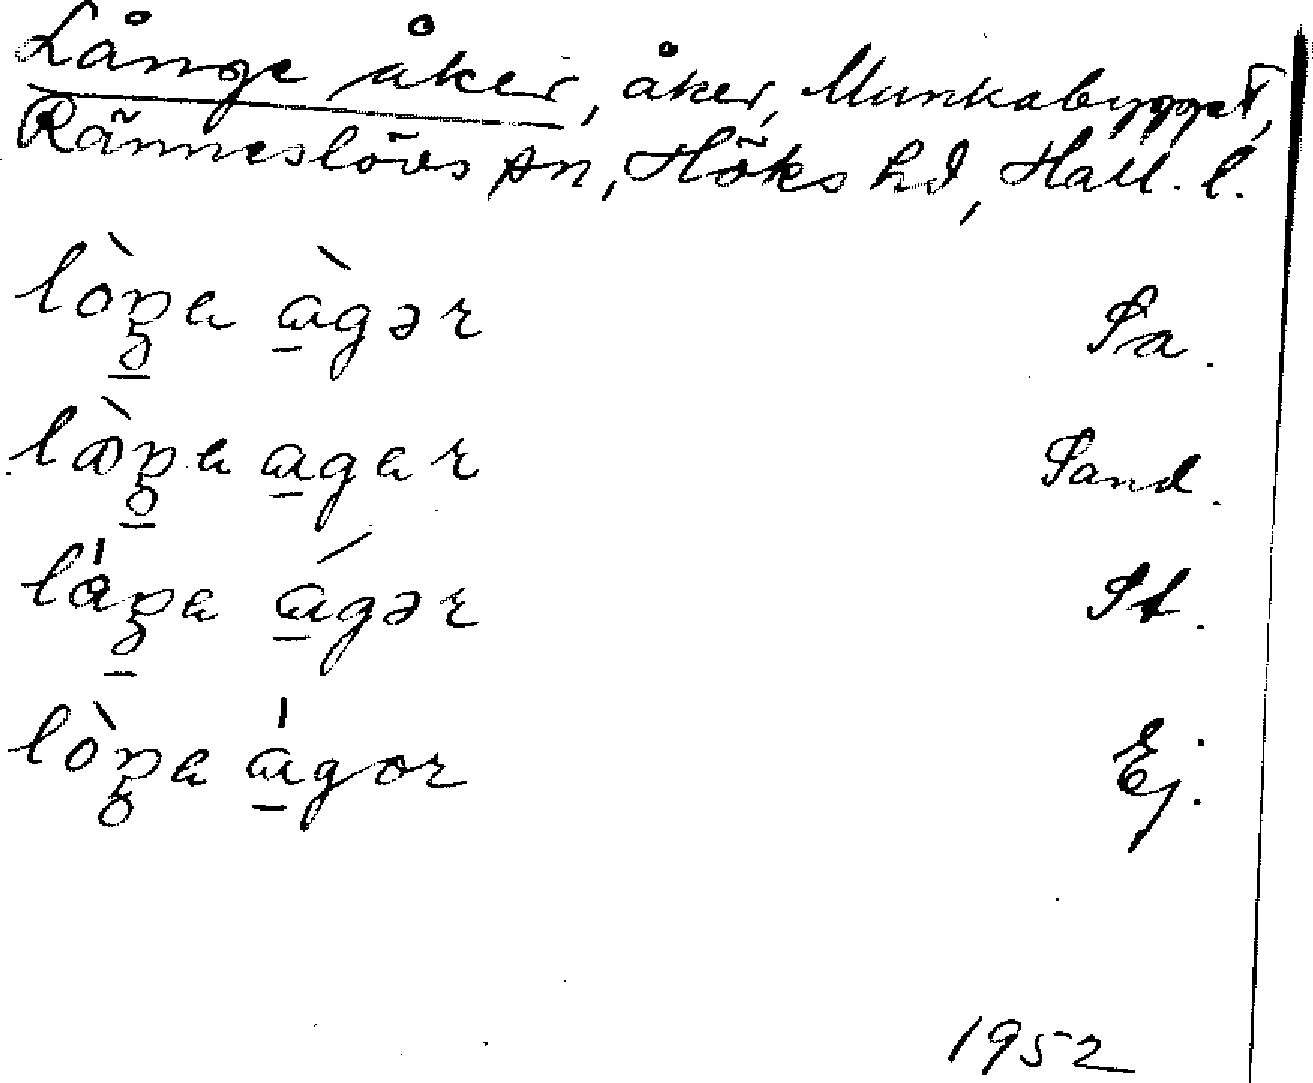 Långe åker, åker, Munkabygget,
Ränneslövs sn, Höks hd, Hall. l.
lòŋa ɑ̀gər Sa.
lɑ̀ŋa ɑgar Sand.
lɑ́ŋa ɑ́gər St.
lòŋa ɑ́gor Ej.
1952